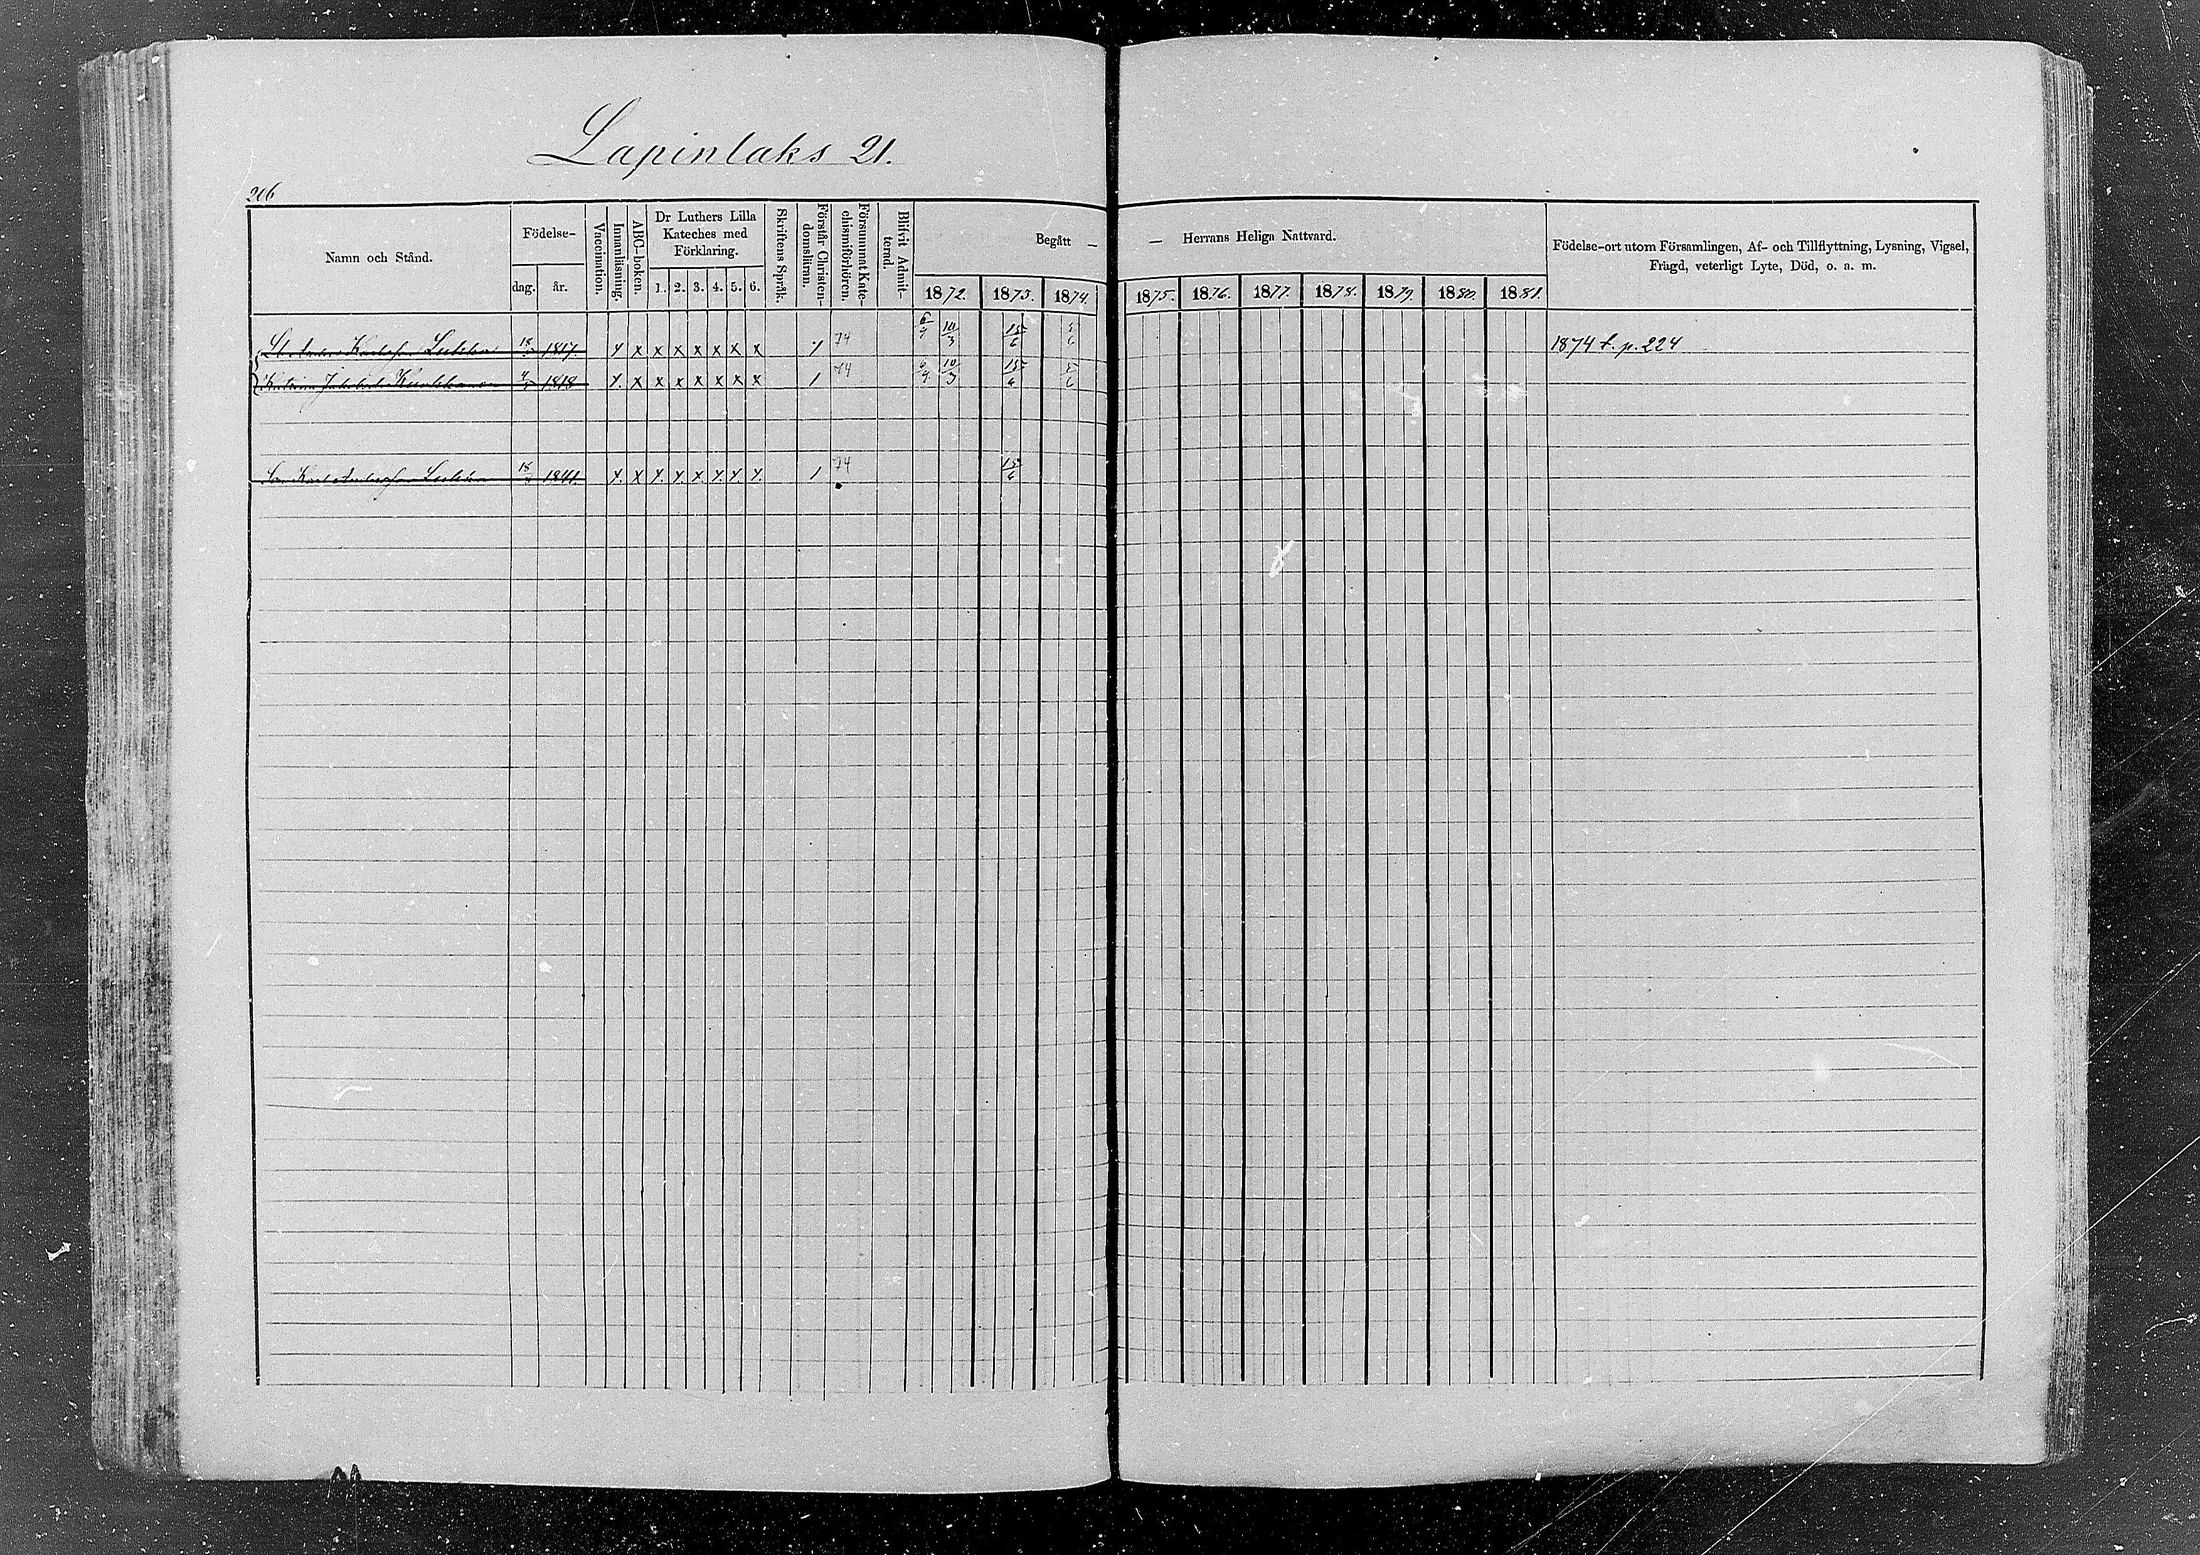 Lapinlaks 21.
206
Namn och Stånd.
Födelse-
dag. år.
Vaccination.
Innanläsning.
ABC-boken.
Dr Luthers Lilla
Kateches med
Förklaring.
1. 2. 3. 4. 5. 6.
Skriftens Språk.
Förstår Christen-
domsläran.
Försummat Kate-
chismiförhören.
Blifvit Admit-
terad.
Begått — — Herrans Heliga Nattvard.
1872. 1873. 1874. 1875. 1876. 1877. 1878. 1879. 1880. 1881.
Födelse-ort utom Församlingen, Af- och Tillflyttning, Lysning, Vigsel,
Frägd, veterligt Lyte, Död, o. a. m.
1817. x x x x x x x 74 6/7 10/3 15/6 1874 t. p. 224
Katarina 1818 x x x x x x x 74 10/3 15/6
Son Karl 18 1841. x x 74 15/6